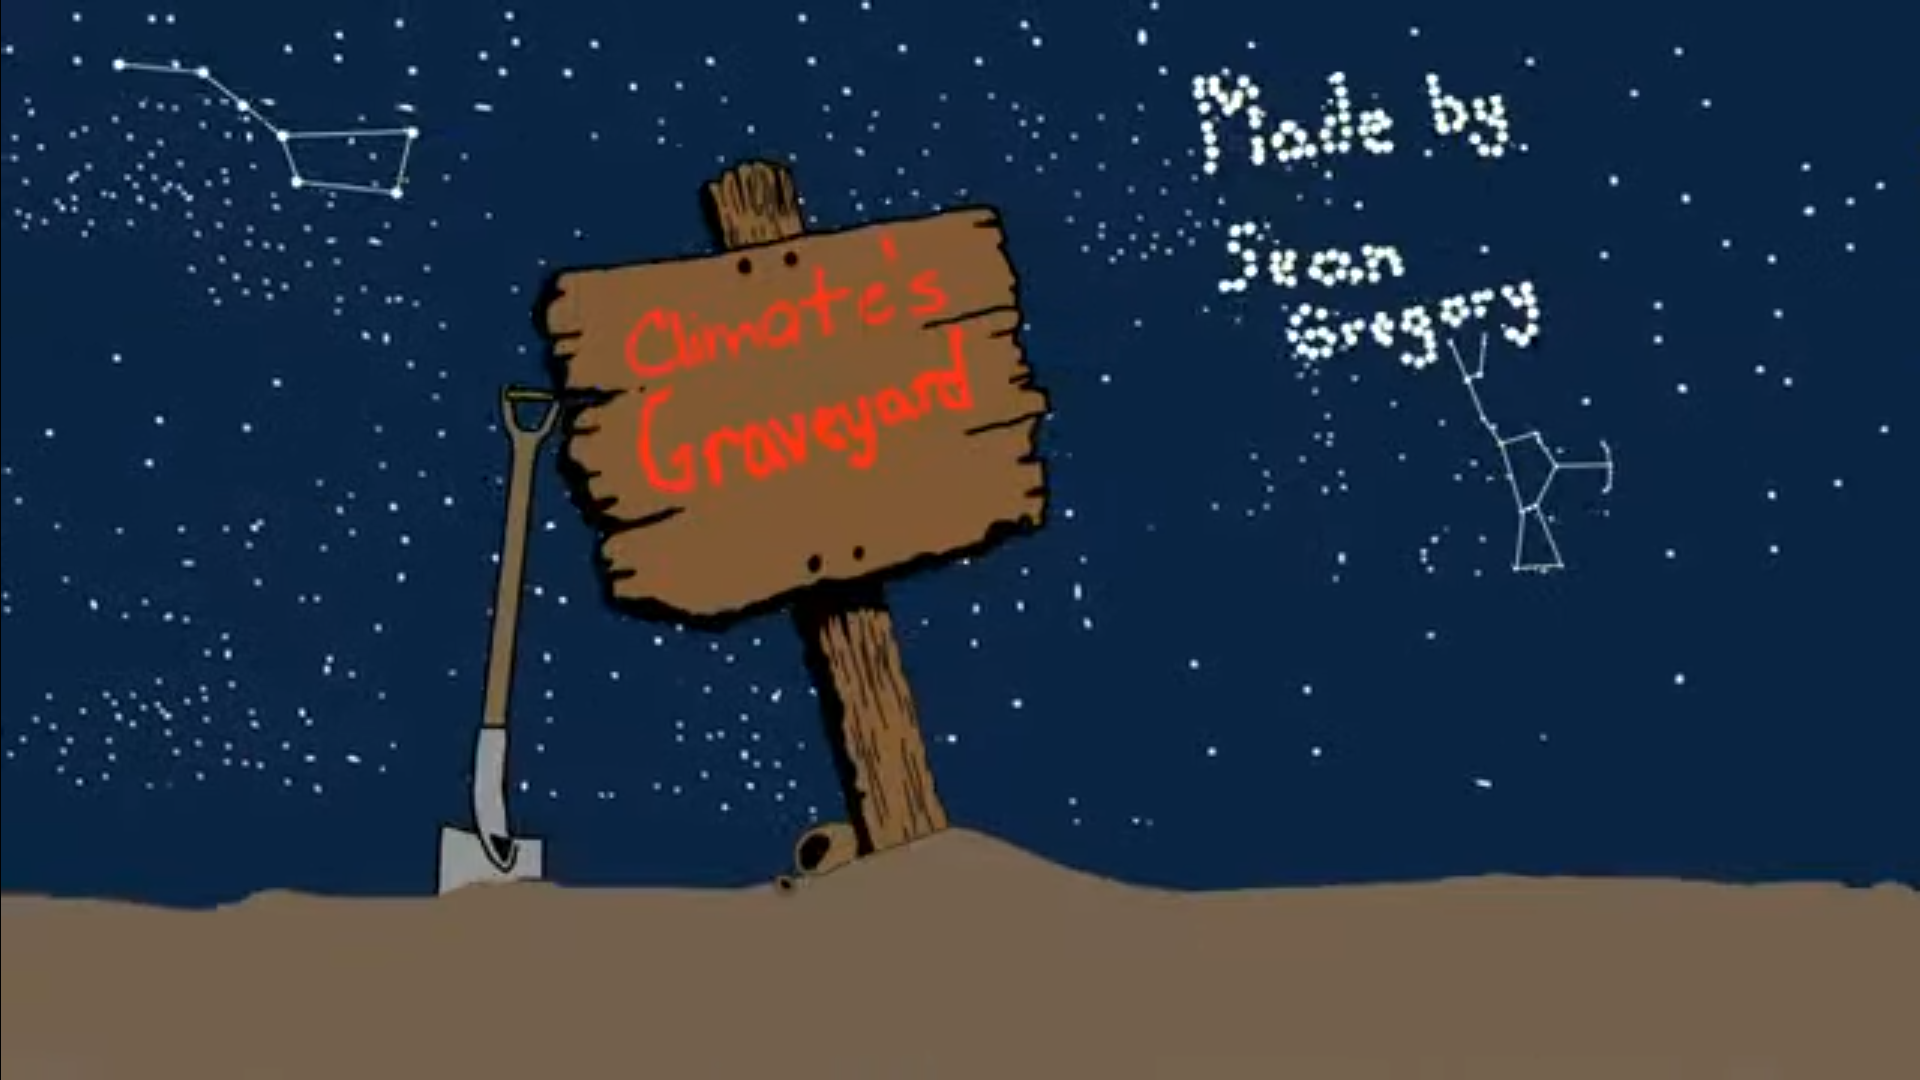 Climate's
Graveyard
Made by
Sean
Gregory